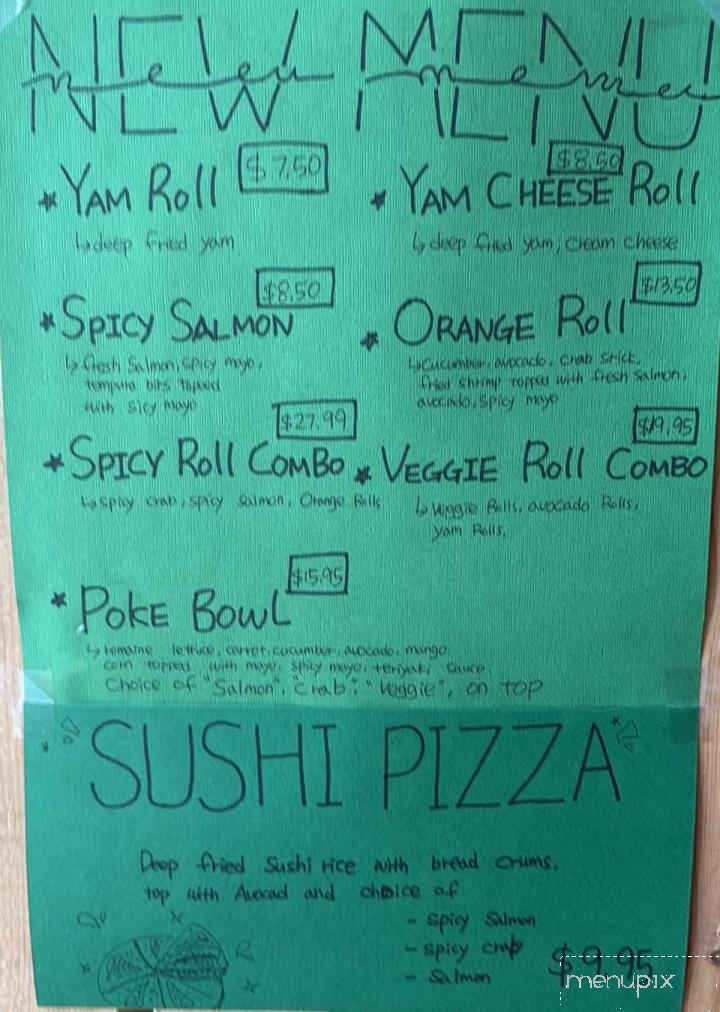 NEW MENU
new menu
YAM Roll $7.50
↳deep fried yam
YAM CHEESE Roll $8.50
↳deep fried yam, cream cheese
SPICY SALMON $8.50
↳fresh Salmon, spicy mayo,
tempura bits topped
with sicy mayo
ORANGE Roll $13.50
↳cucumber, avocado, crab stick,
fried shrimp topped with fresh salmon,
avocado, spicy mayo
SPICY Roll COMBO $27.99
↳spicy crab, spicy salmon, Orange Rolls
VEGGIE Roll COMBO $19.95
↳Veggie Rolls, avocado Rolls,
Yam Rolls,
POKE BOWL $15.95
↳romaine lettuce, carrot, cucumber, avocado, mango
corn topped with mayo, spicy mayo, teriyaki sauce.
Choice of "Salmon", "Crab", "Veggie", on top
SUSHI PIZZA
Deep fried Sushi rice with bread crums.
top with Avocad and choice of
- Spicy Salmon
- spicy crab
- Salmon
$9.95
menupix